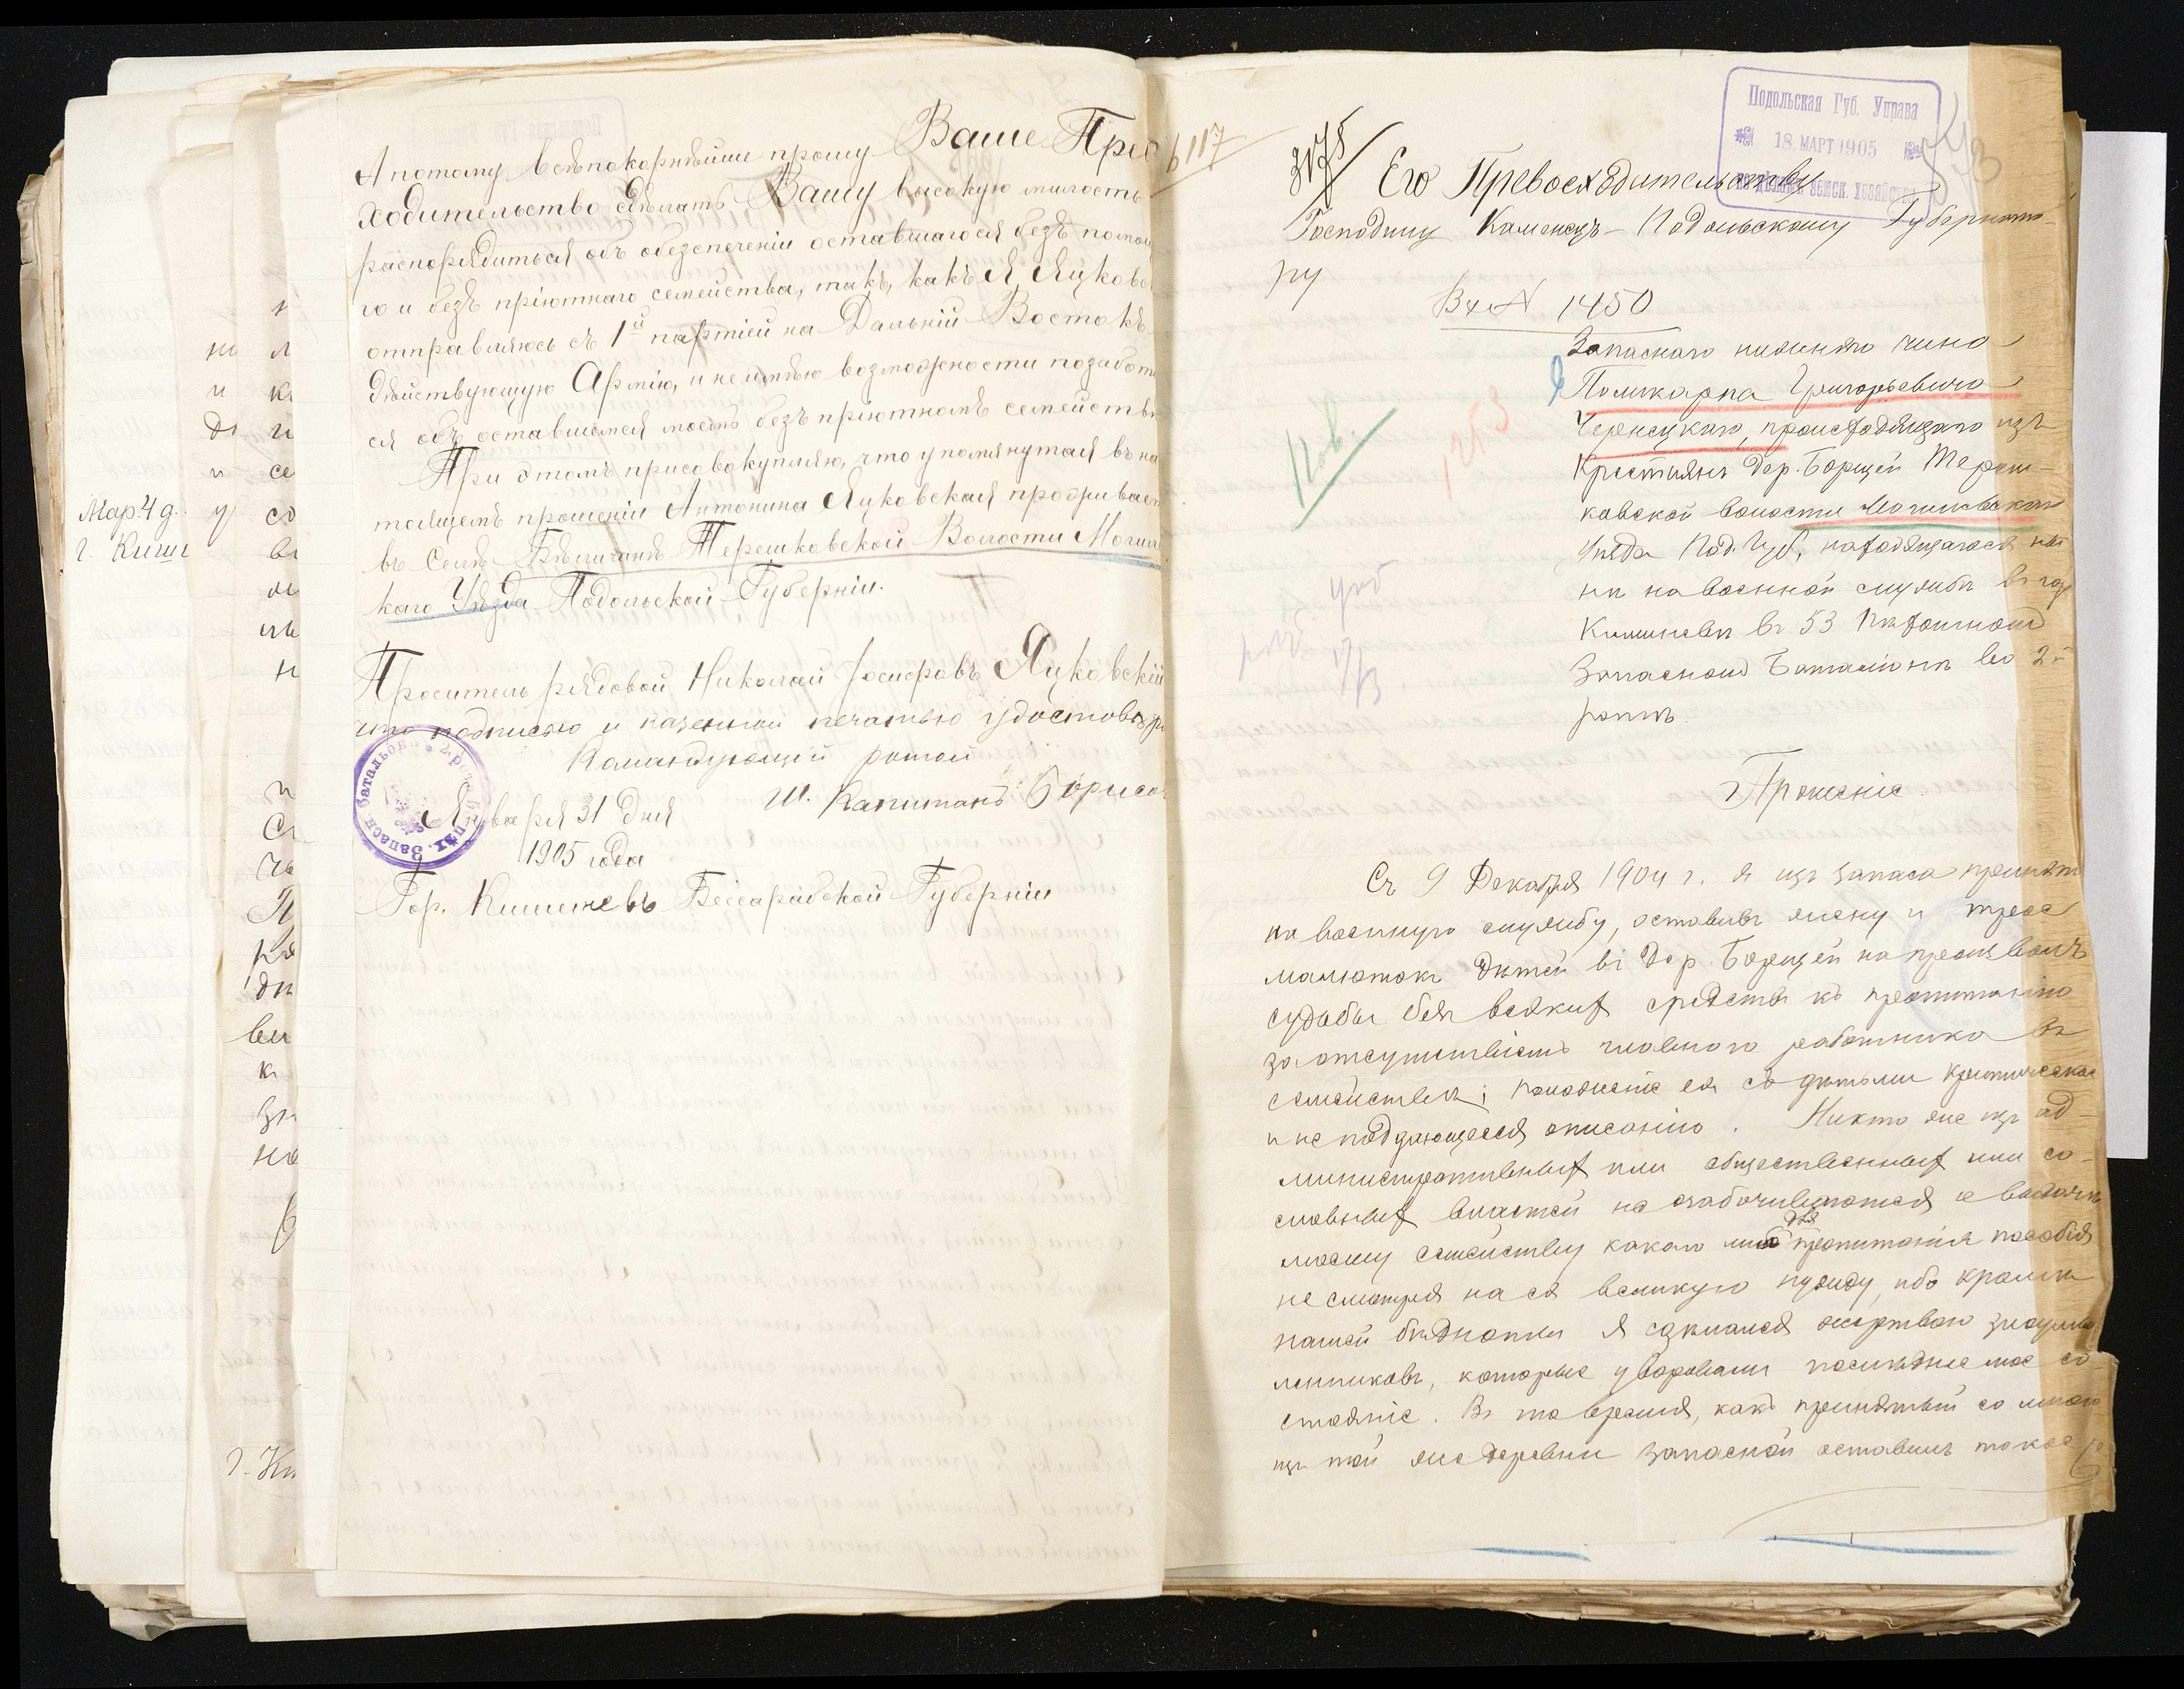 А потому всепокорнѣйше прошу Ваше Прев
ходительство сдѣлать Вашу высокую милость
распорядиться объ обезпеченіи оставшагося безъ помощ
го и безъ пріютнаго семейства, такъ, какъ Я Яцковс
отправляюсь съ 1й партіей на Дальній Востокъ
дѣйствующую Армію, и неимѣю возможности позабот
ся объ оставшемся моемъ безъ пріютномъ семейств
При этомъ присовокупляю, что упомянутая въ на
тоящемъ прошеніи Антонина Яцковская проживает
въ Селѣ Терешковской Волости Могил
каго Уѣзда Подольской Губерніи.
Проситель рядовой Николай Іосифовъ Яцковскій
что подписью и казенной печатью удостовѣр
Командующій ротой
Ш. Капитанъ Борисо
Января 31 дня
1905 года
Гор. Кишиневъ Бессарабской Губерніи
Мар. 4 д.
г. Киши
117
Подольская Губ. Управа
18. МАРТ 1905
3175
Его Превосходительству
Господину Каменецъ-Подольскому Губернато-
ру
Вх № 1450
Запаснаго нижняго чина
Поликарпа Григорьевича
Чернецкаго, происходящаго изъ
Крестьянъ дер. Борщей Тереш-
ковской волости Могилевскаго
Уѣзда Под. Губ., находящагося нын
нѣ на военной службѣ въ гор
Кишиневѣ въ 53 Пѣхотномъ
Запасномъ Баталіонѣ во 2й
ротѣ.
Прошеніе.
Съ 9 Декабря 1904 г. я изъ запаса принятъ
на военную службу, оставивъ жену и трое
малютокъ дѣтей въ дер. Борщей на произволъ
судьбы безъ всякихъ средствъ къ пропитанію
за отсутствіемъ главнаго работника въ
семействѣ; положеніе ея съ дѣтьми критическое
и не поддающееся описанію. Никто же изъ ад-
министративныхъ или общественныхъ или со-
словныхъ властей не озабочиваются о выдачѣ
моему семейству какого либо для пропитанія пособія
не смотря на ея великую нужду, ибо кромѣ
нашей бѣдноты я сдѣлался жертвою злоумы
ленниковъ, которые уворовали послѣднее мое со-
стояніе. Въ то время, какъ принятый со мною
изъ той же деревни запасной оставилъ такое